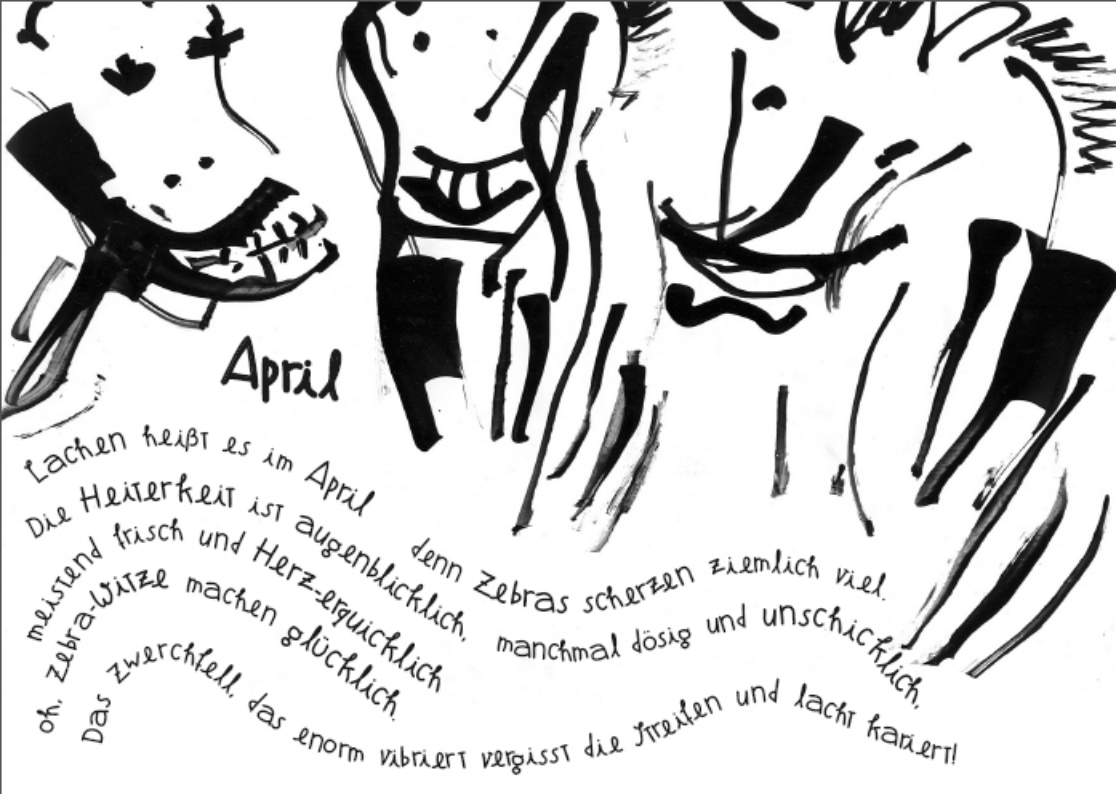 April
Lachen heißt es im April
denn Zebras scherzen ziemlich viel.
Die Heiterkeit ist augenblicklich,
manchmal dösig und unschicklich,
meistend frisch und Herz-erquicklich
oh, Zebra-Witze machen glücklich.
Das Zwerchfell, das enorm vibriert vergisst die Streifen und lacht kariert!